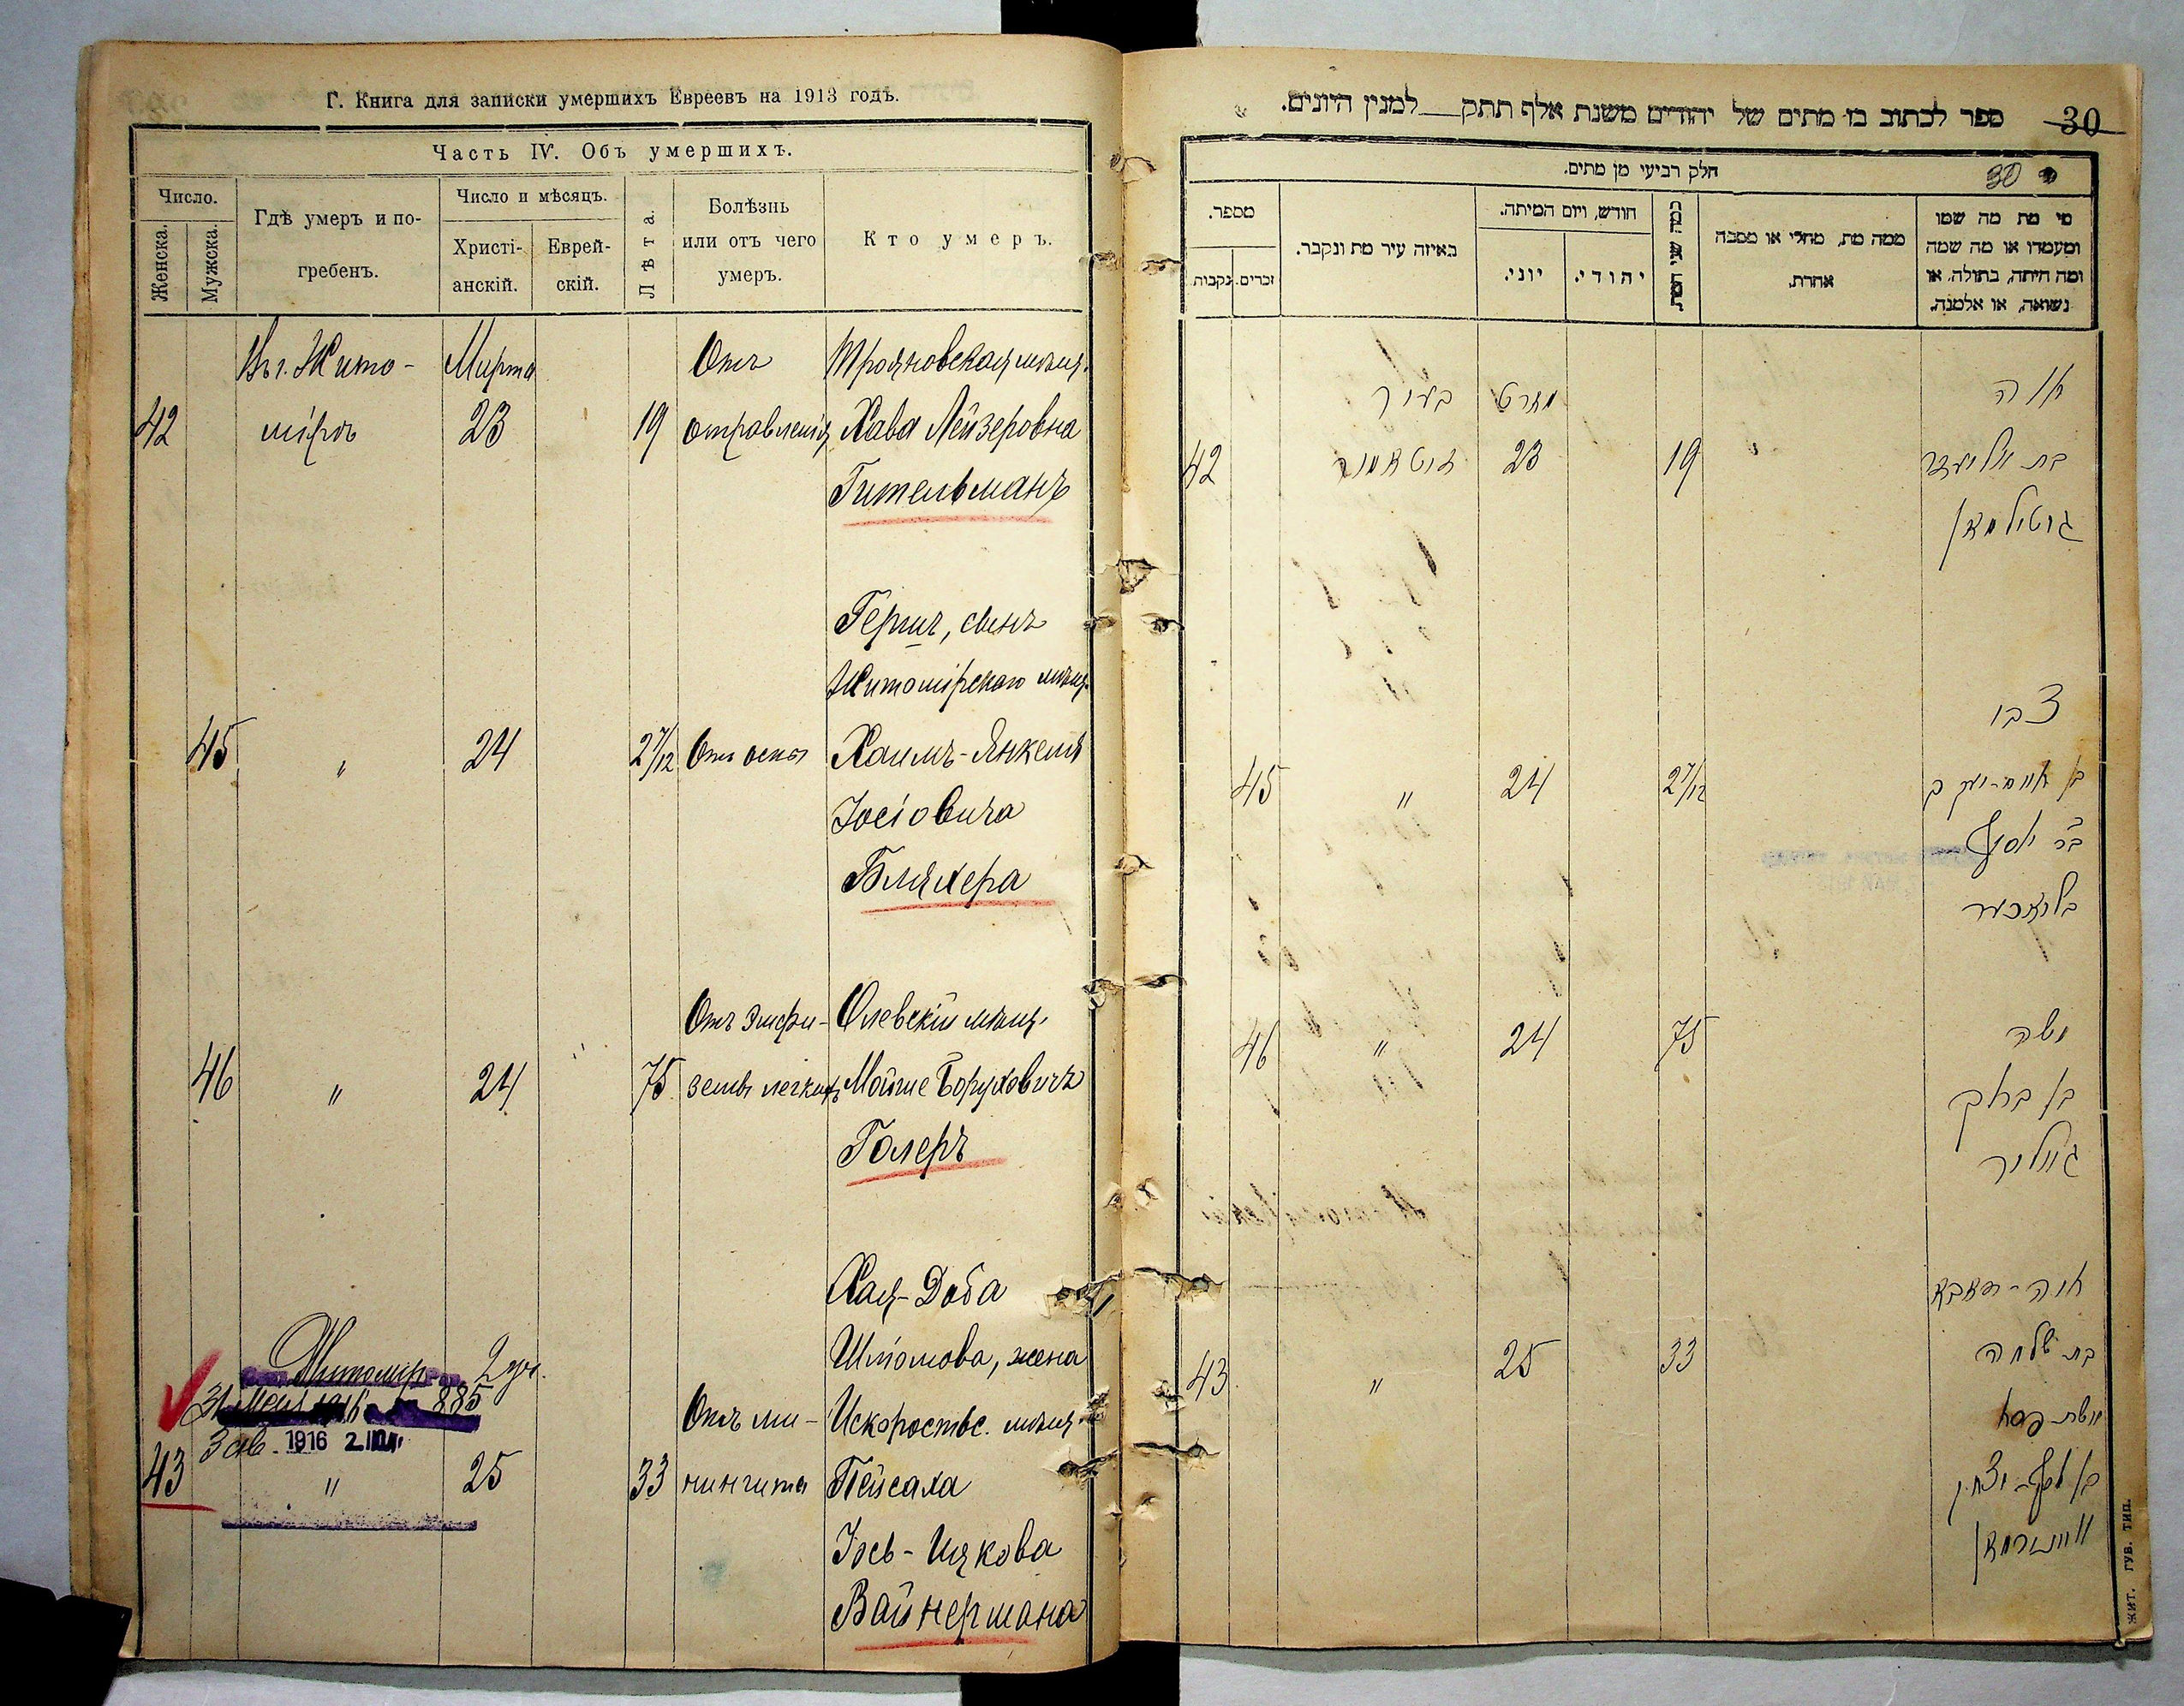 Г. Книга для записки умершихъ Евреевъ на 1913 годъ.
Часть IV. Объ умершихъ.
Число.
Женска.
Мужска.
Гдѣ умеръ и по-
гребенъ.
Число и мѣсяцъ.
Христі-
анскій.
Еврей-
скій.
Лѣта.
Болѣзнь
или отъ чего
умеръ.
Кто умеръ.
Въ г. Жито- Марта Отъ Трояновская мѣщ.
42 мірѣ 23 19 отравленія Хава Лейзеровна
Гительманъ
Гершъ, сынъ
Житомірскаго мѣщ.
45 " 24 2 7/12 Отъ оспы Хаимъ-Янкеля
Іосіовича
Бляхера
Отъ эмфи- Олевскій мѣщ.
46 " 24 75 земы легкихъ Мойше Боруховичъ
Голеръ
Хая-Доба
Шліомова, жена
Житомир 2
31 885
Отъ ме- Искоростьс. мѣщ.
1916 2
43 " 25 33 нингита Пейсаха
Іось-Ицкова
Вайнермана
ספר לכתוב בו מתים של יהודים משנת אלף תתק למנין היונים.
30
חלק רביעי מן מתים.
30
מי מת מה שמו
ומעמדו או מה שמה
ומה היתה, בתולה, או
נשואה, או אלמנה.
ממה מת, מחלי או מסבה
אחרת.
כמה שני המת
חודש, ויום המיתה.
יהודי.
יוני.
באיזה עיר מת ונקבר.
מספר.
זכרים.
נקבות
חוה
מארט בעיר
בת אליעזר 19 23 זיטאמיר 42
גיטילמאן
צבי
בן חיים-יעקב 2 7/12 24 " 45
בר יוסף
בליאכער
משה 75 24 " 46
בן ברוך
גאליר
חיה-דאבא
בת שלמה 33 25 " 43
אשת פסח
בן יוסף-יצחק
וויינערמאן
ЖИТ. ГУБ. ТИП.